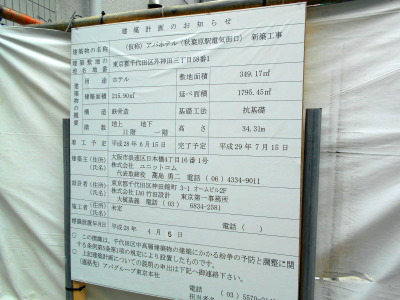 建築計画のお知らせ
建築物の名称 (仮称) アパホテル〈秋葉原駅電気街口〉 新築工事
建築敷地の地名地番 東京都千代田区外神田三丁目58番1
建築物の概要
用途 ホテル 敷地面積 349.17㎡
建築面積 215.90㎡ 延べ面積 1795.45㎡
構造 鉄骨造 基礎工法 杭基礎
階数 地上 11階 地下 一階 高さ 34.31m
着工予定 平成28年6月15日 完了予定 平成29年7月15日
建築主(住所)(氏名) 大阪市浪速区日本橋4丁目16番1号
株式会社 ユニットコム
代表取締役 高島 勇二 電話 (06) 4334-9011
設計者(住所)(氏名) 東京都千代田区神田錦町 3-1 オームビル2F
株式会社IAO竹田設計 東京第一事務所
大槻基義 電話 (03) 6834-2581
施工者(住所)(氏名) 未定
電話 ( )
標識設置年月日 平成28年 4月 5日
○ この標識は、千代田区中高層建築物の建築にかかる紛争の予防と調整に関
する条例第5条第1項の規定により設置したものです。
○ 上記建築計画についての説明の申出は下記へ御連絡下さい。
(連絡先) アパグループ東京本社
電話 (03) 5570-
担当者